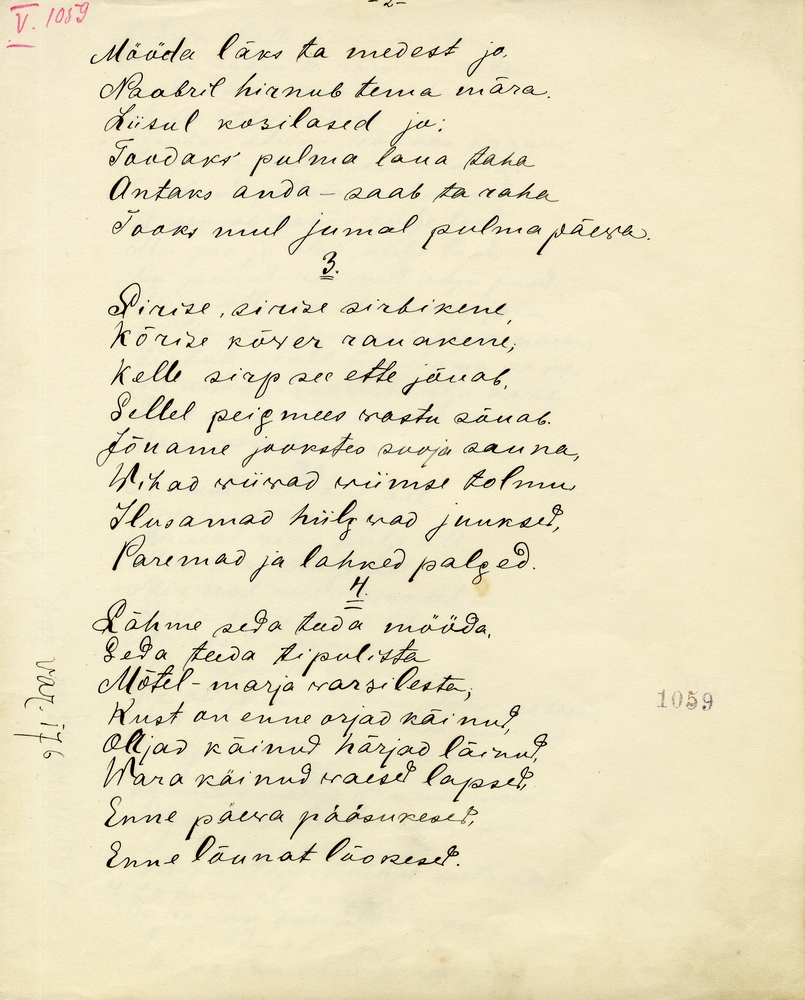 -2-
V. 1059
Mööda läks ta medest jo.
Naabril hirnub tema mära.
Liisul kosilased jo:
Toodaks pulma laua taha
Antaks anda – saab ta raha
Tooks mul jumal pulma päewa.
3.
Sirise, sirise sirbikene,
Kõrise kõwer rauakene;
Kelle sirp see ette jõuab,
Sellel peigmees wastu sõuab.
Jõuame joostes sooja sauna,
Wihad wiiwad wiimse tolmu
Ilusamad hiilgwad juuksed,
Paremad ja lahked palged.
4.
Lähme seda teeda mööda,
Seda teeda tipulista
Mõtel-marja warsilesta;
Kust on enne orjad käinud,
Olljad käinud härjad läinud,
Wara käinud waesed lapsed,
Enne päewa pääsukesed,
Enne lõunat lõokesed.
var. 176
1059